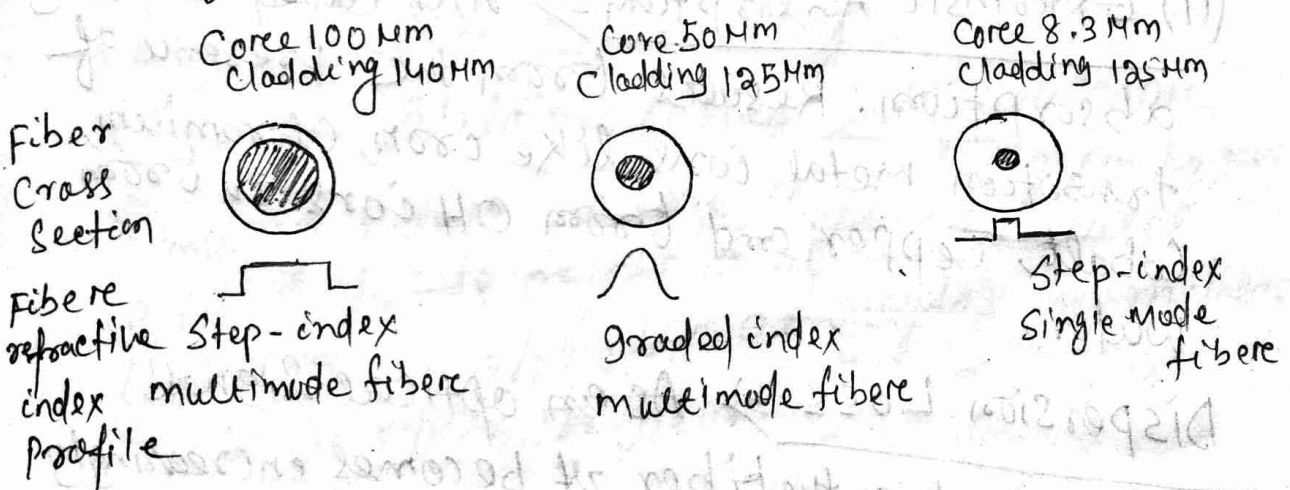 Coree 100 Mm
Cladding 140 Mm
Core 50 Mm
Cladding 125 Mm
Coree 8.3 Mm
Cladding 125 Mm
Fiber
Cross
Section
Fibere
refractive
index
Profile
Step-index
multimude fibere
graded index
multimode fibere
Step-index
Single Mode
fibere